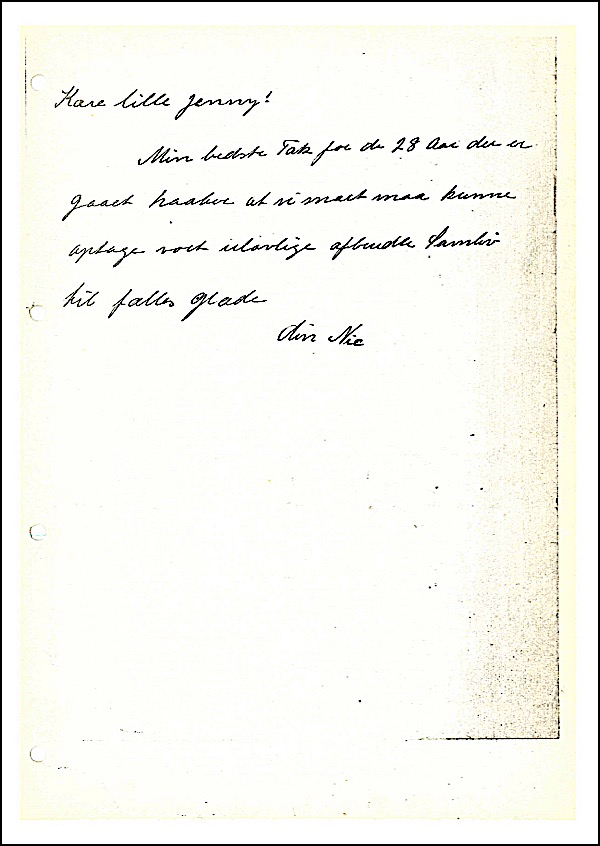 Kære lille Jenny!
Min bedste Tak for de 28 Aar der er
gaaet haaber at vi snart maa kunne
optage vort ulovlige afbrudte Samliv
til fælles Glæde
din Nic